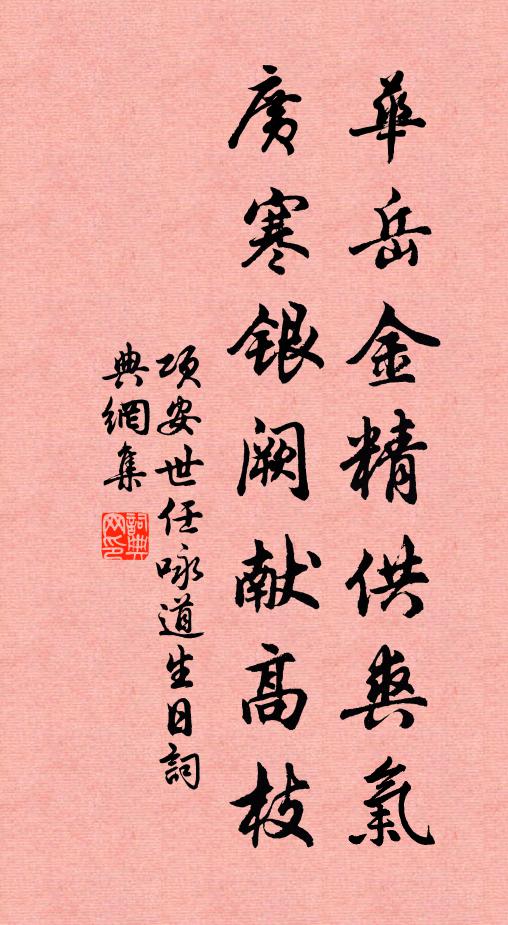 華岳金精供爽氣
廣寒銀阙献高枝
項安世任咏道生日詞
典網集
詞典
网印